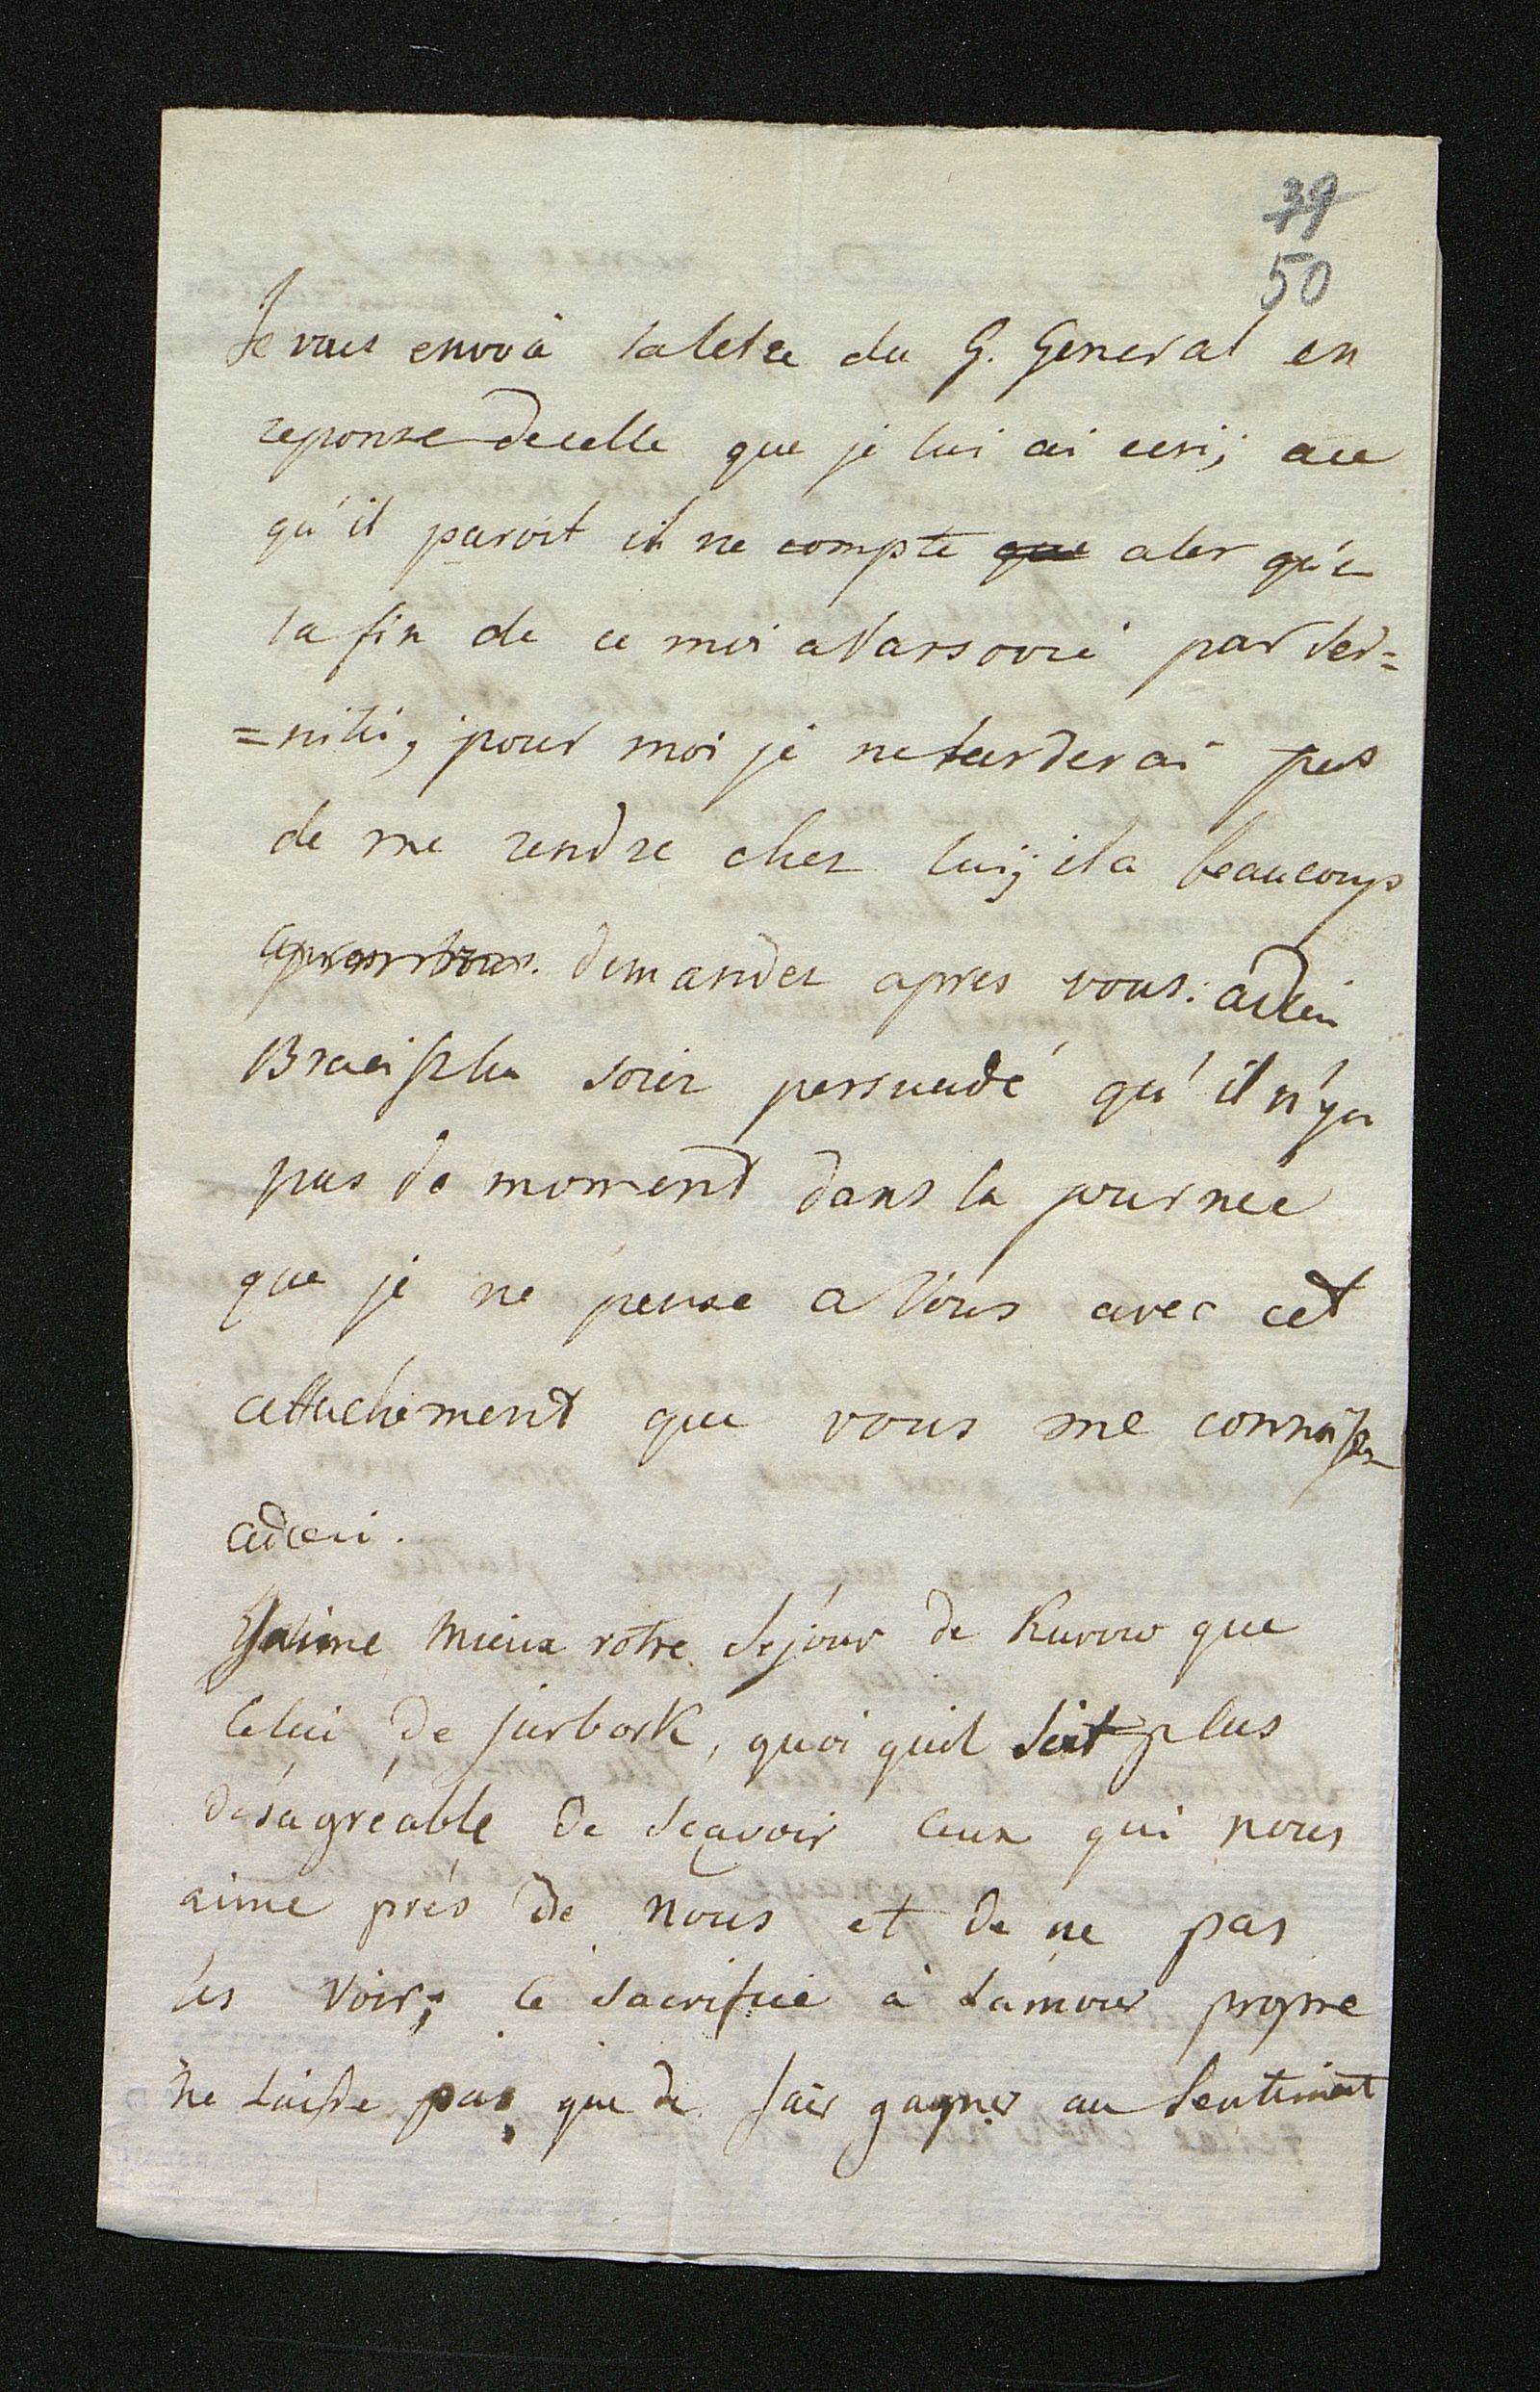 39
50
Je vous envoïà la letre du G. General en
reponse de celle que je lui ai ecri; a ce
qu'il paroit il ne compte que aler qu'a
la fin de ce moi a Varsovie par
=nitie, pour moi je ne tarderai pas
de me rendre chez lui; il a beaucoup
demandez apres vous: adieu
soiez persuadé qu'il n'y a
pas de moment dans la journee
que je ne pense a Vous avec cet
attachement que vous me connoissez
adieu.
J'aime mieux votre séjour de Kurow que
celui de Jurbork, quoi quil soit plus
désagréable de sçavoir ceux qui nous
aime près de nous et de ne pas
les voir; ce sacrifice à l'amour propre
ne laisse pas que de fair gagner au sentiment